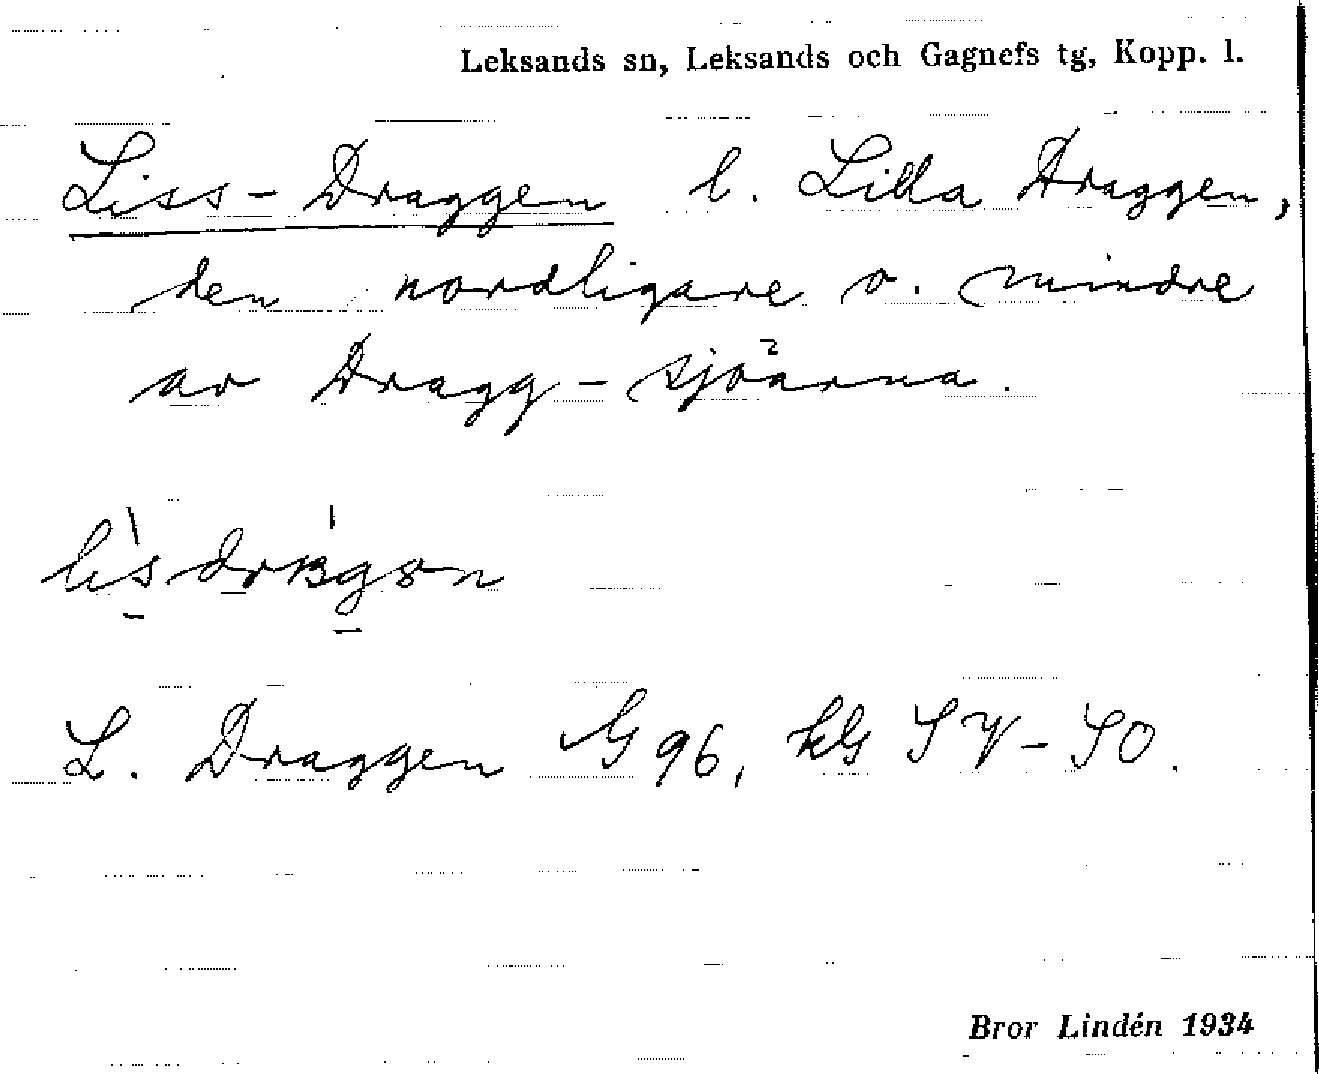 Leksands sn, Leksands och Gagnefs tg, Kopp. l.
Liss-Draggen l. Lilla Draggen,
den nordligare o. mindre
av Dragg-sjöarna.
L. Draggen G 96, kbl SV-SO.
Bror Lindén 1934